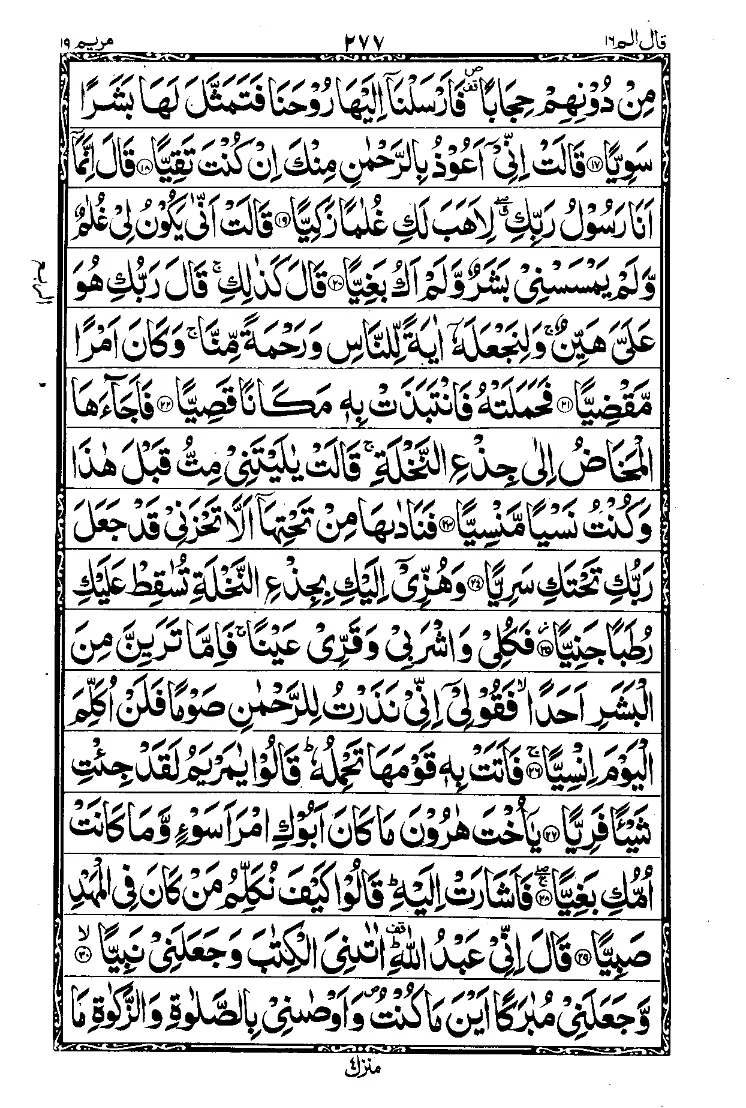 قال الم ١٦ ٢٧٧ مريم ١٩
مِنْ دُوْنِهِمْ حِجَابًا ۪ۛ فَاَرْسَلْنَاۤ اِلَيْهَا رُوْحَنَا فَتَمَثَّلَ لَهَا بَشَرًا
سَوِيًّا ﴿۱۷﴾ قَالَتْ اِنِّيْۤ اَعُوْذُ بِالرَّحْمٰنِ مِنْكَ اِنْ كُنْتَ تَقِيًّا ﴿۱۸﴾ قَالَ اِنَّمَاۤ
اَنَا رَسُوْلُ رَبِّكِ ۖ لِاَهَبَ لَكِ غُلٰمًا زَكِيًّا ﴿۱۹﴾ قَالَتْ اَنّٰى يَكُوْنُ لِيْ غُلٰمٌ
وَّلَمْ يَمْسَسْنِيْ بَشَرٌ وَّلَمْ اَكُ بَغِيًّا ﴿۲۰﴾ قَالَ كَذٰلِكِ ۚ قَالَ رَبُّكِ هُوَ
عَلَيَّ هَيِّنٌ ۚ وَلِنَجْعَلَهٗۤ اٰيَةً لِّلنَّاسِ وَرَحْمَةً مِّنَّا ۚ وَكَانَ اَمْرًا
مَّقْضِيًّا ﴿۲۱﴾ فَحَمَلَتْهُ فَانْتَبَذَتْ بِهٖ مَكَانًا قَصِيًّا ﴿۲۲﴾ فَاَجَآءَهَا
الْمَخَاضُ اِلٰى جِذْعِ النَّخْلَةِ ۚ قَالَتْ يٰلَيْتَنِيْ مِتُّ قَبْلَ هٰذَا
وَكُنْتُ نَسْيًا مَّنْسِيًّا ﴿۲۳﴾ فَنَادٰىهَا مِنْ تَحْتِهَاۤ اَلَّا تَحْزَنِيْ قَدْ جَعَلَ
رَبُّكِ تَحْتَكِ سَرِيًّا ﴿۲۴﴾ وَهُزِّيْۤ اِلَيْكِ بِجِذْعِ النَّخْلَةِ تُسٰقِطْ عَلَيْكِ
رُطَبًا جَنِيًّا ﴿۲۵﴾ فَكُلِيْ وَاشْرَبِيْ وَقَرِّيْ عَيْنًا ۚ فَاِمَّا تَرَيِنَّ مِنَ
الْبَشَرِ اَحَدًا ۙ فَقُوْلِيْۤ اِنِّيْ نَذَرْتُ لِلرَّحْمٰنِ صَوْمًا فَلَنْ اُكَلِّمَ
الْيَوْمَ اِنْسِيًّا ﴿۲۶﴾ ۚ فَاَتَتْ بِهٖ قَوْمَهَا تَحْمِلُهٗ ؕ قَالُوْا يٰمَرْيَمُ لَقَدْ جِئْتِ
شَيْئًا فَرِيًّا ﴿۲۷﴾ يٰۤاُخْتَ هٰرُوْنَ مَا كَانَ اَبُوْكِ امْرَاَ سَوْءٍ وَّمَا كَانَتْ
اُمُّكِ بَغِيًّا ﴿۲۸﴾ ۖۚ فَاَشَارَتْ اِلَيْهِ ؕ قَالُوْا كَيْفَ نُكَلِّمُ مَنْ كَانَ فِي الْمَهْدِ
صَبِيًّا ﴿۲۹﴾ قَالَ اِنِّيْ عَبْدُ اللّٰهِ ؕ اٰتٰىنِيَ الْكِتٰبَ وَجَعَلَنِيْ نَبِيًّا ﴿۳۰﴾ ۙ
وَّجَعَلَنِيْ مُبٰرَكًا اَيْنَ مَا كُنْتُ ۪ وَاَوْصٰىنِيْ بِالصَّلٰوةِ وَالزَّكٰوةِ مَا
الربع
منزل ٤